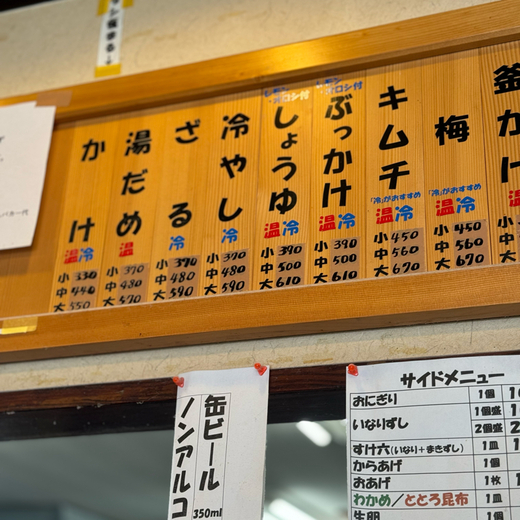 かけ
温冷
小 330
中 440
大 550
湯だめ
温
小 370
中 480
大 570
ざる
冷
小 370
中 480
大 590
冷やし
冷
小 390
中 480
大 590
レモン・オロシ付
しょうゆ
温冷
小 390
中 500
大 610
レモン・オロシ付
ぶっかけ
温冷
小 390
中 500
大 610
キムチ
「冷」がおすすめ
温冷
小 450
中 560
大 670
梅
「冷」がおすすめ
温冷
小 450
中 560
大 670
釜かけ
温
小 450
中
大
缶ビール
ノンアルコ
350ml
サイドメニュー
おにぎり 1個
いなりずし 1個盛
2個盛
すけ六(いなり+まきずし) 1皿
からあげ 1個
おあげ 1枚
わかめ/とろろ昆布 1皿
生卵 1個